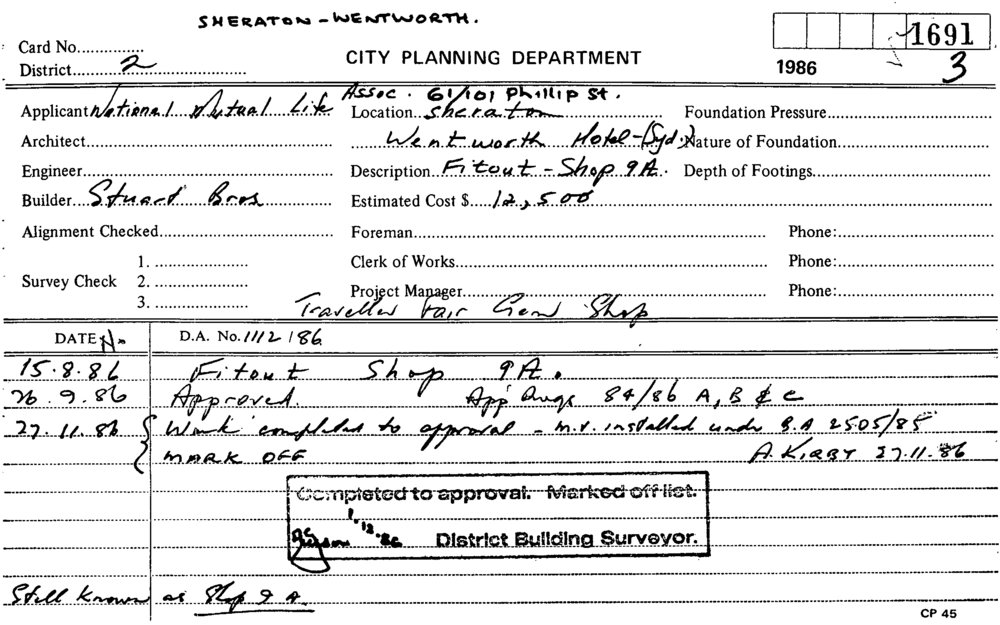 SHERATON - WENTWORTH.
1691
Card No...............
CITY PLANNING DEPARTMENT
1986
3
District 2
Assoc. 61/101 Phillip St.
Applicant National Mutual Life Location Sheraton Foundation Pressure
Architect Wentworth Hotel - (Syd.) Nature of Foundation
Engineer Description Fitout - Shop 9A. Depth of Footings
Builder Stuart Bros Estimated Cost $ 12,500
Alignment Checked Foreman Phone:
1. Clerk of Works Phone:
Survey Check 2.
Project Manager Phone:
3. Traveller Fair Gem Shop
DATE No D.A. No. 1112/86
15.8.86 Fitout Shop 9A.
26.9.86 Approved. App Dwgs 84/86 A, B & C
27.11.86 Work completed to approval - M.V. installed under B.A 2505/85
MARK OFF A. KIRBY 27.11.86
Completed to approval. Marked off list.
1.12.86
District Building Surveyor.
Still known as Shop 9A.
CP 45